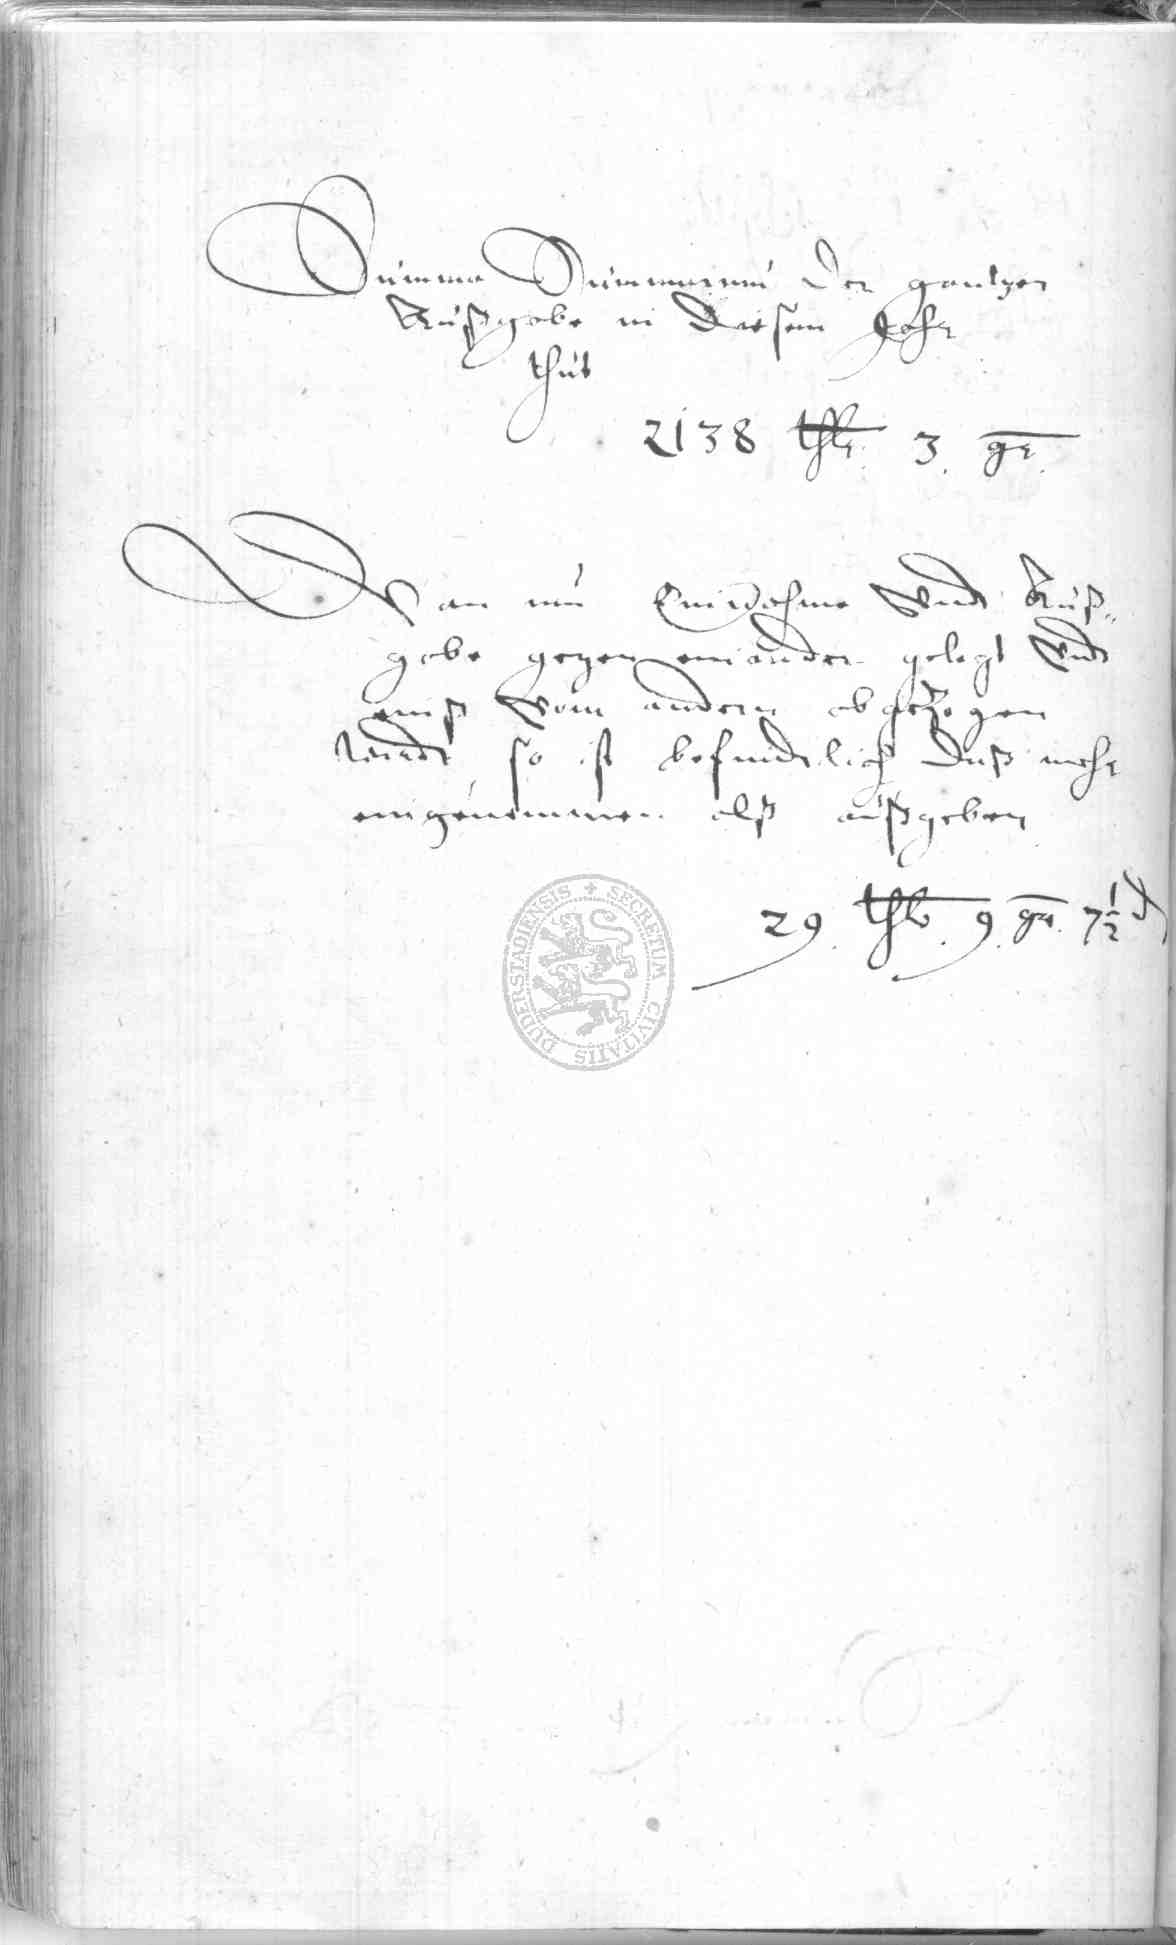 Summa Summarum der gantzen
Außgabe in diesem Jahr
thut
2138 thlr. 3. gr.
Wan nu Einnahme vndt Auß„
gabe gegen einander gelegt vndt
einß vom andern abgezogen
wirdt so ist befindtlich daß mehr
eingenommen alß außgeben
29. thlr. 9. gr. 7 1/2 d
SECRETUM CIVITATIS DUDERSTADIENSIS